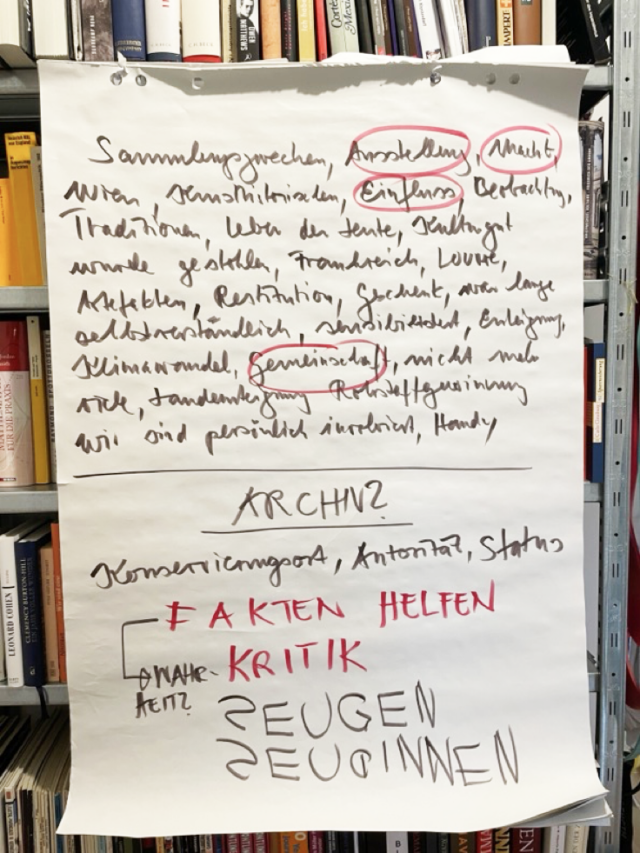 Ausstellung, Macht,
Wien, Einfluss, Betrachtung,
Traditionen, Leben der Leute, Kulturgut
wurde gestohlen, Frankreich, Louvre,
Artefakten, Restitution, Geschenk, war lange
selbstverständlich, sensibilisiert, Enteignung,
Klimawandel, Gemeinschaft, nicht mehr
Rohstoffgewinnung
wir sind persönlich involviert, Handy
ARCHIV?
Konservierungsort, Autorität, Status
FAKTEN HELFEN
KRITIK
WAHR-
HEIT?
ZEUGEN
ZEUGINNEN
LEONARD COHEN
CLEMENCY BURTON-HILL